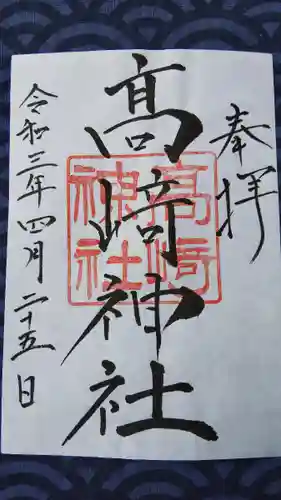 奉拝
高崎神社
高崎
神社
令和三年四月二十五日